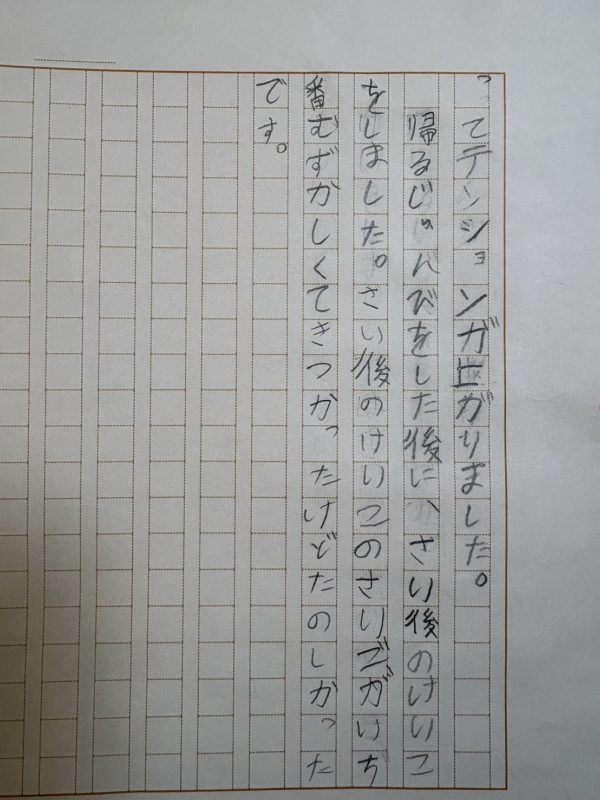 ってテンションガ上がりました。
帰るじゅんびをした後に、さい後のけいこ
をしました。さい後のけいこのさいごがいち
番むずかしくてきつかったけどたのしかった
です。